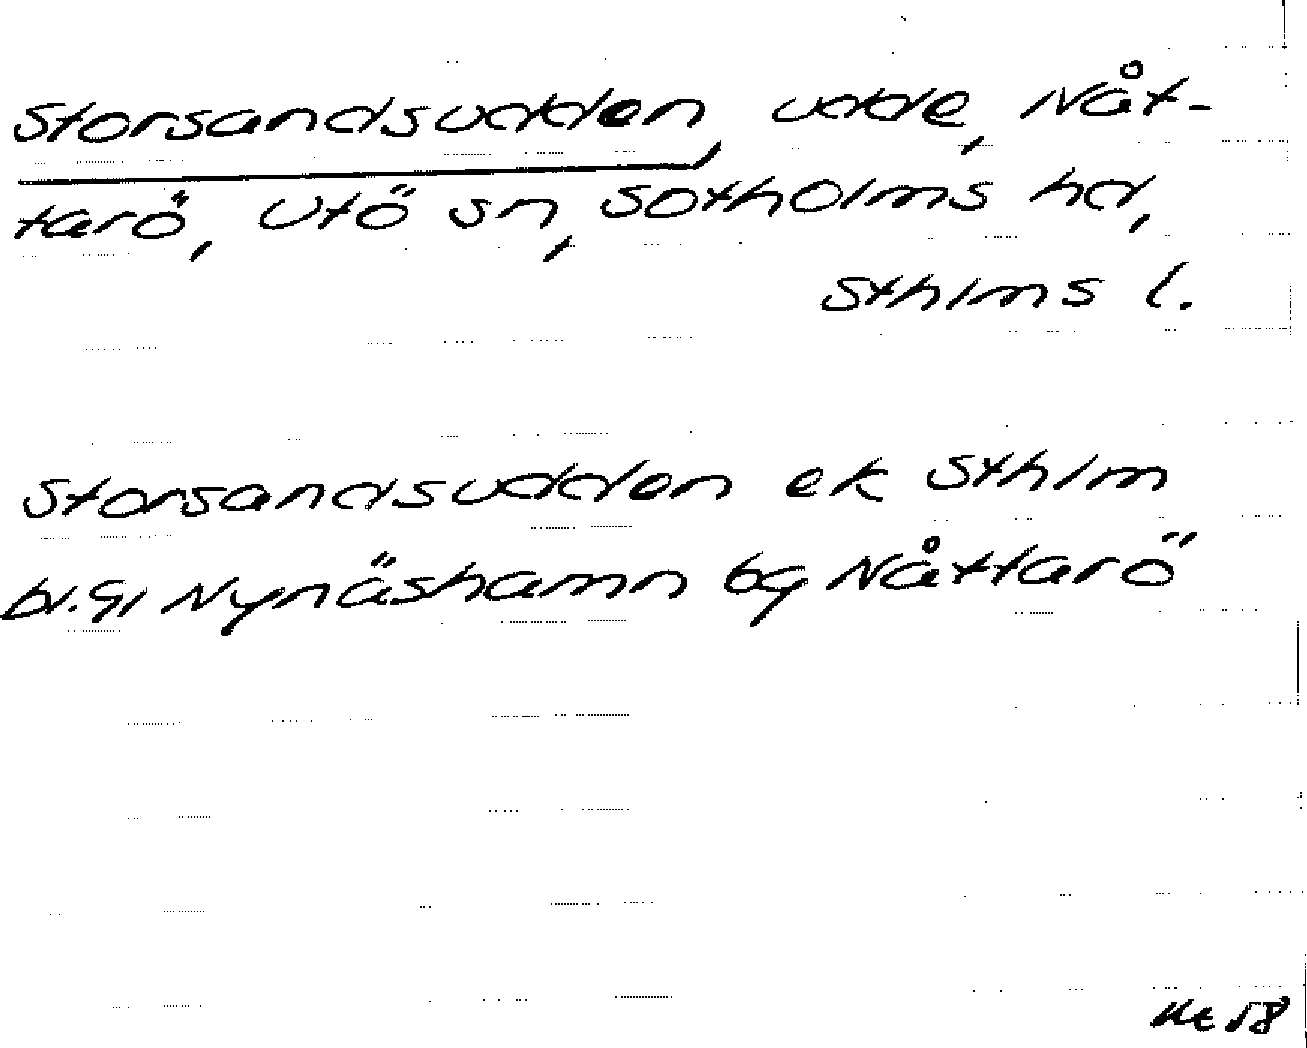 Storsandsudden, udde, Nåt-
tarö, Utö sn, Sotholms hd,
Sthlms l.
Storsandsudden ek Sthlm
bl. 91 Nynäshamn bg Nåttarö